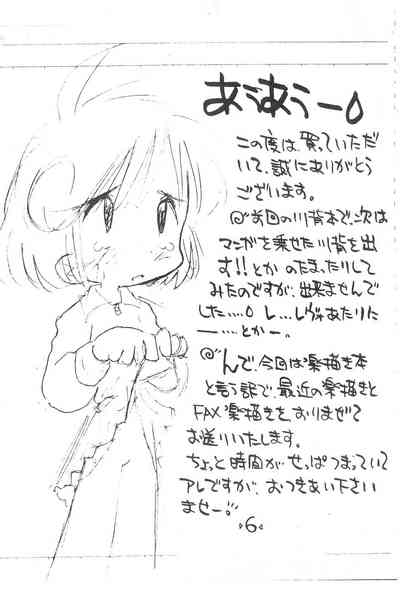 あうあうー。
この度は、買っていただ
いて、誠にありがとう
ございます。
@前回の川背本で、次は
マンガを乗せた川背を出
す!!とか のたまったりして
みたのですが、出来ませんで
した....。 レ...レヴォあたりに
ー----とかー。
@んで、今回は楽描き本
と言う訳で、最近の楽描きと
FAX楽描きを、おりまぜて
お送りいたします。
ちょっと時間が せっぱつまっていて
アレですが、おつきあい下さい
ませー。
6